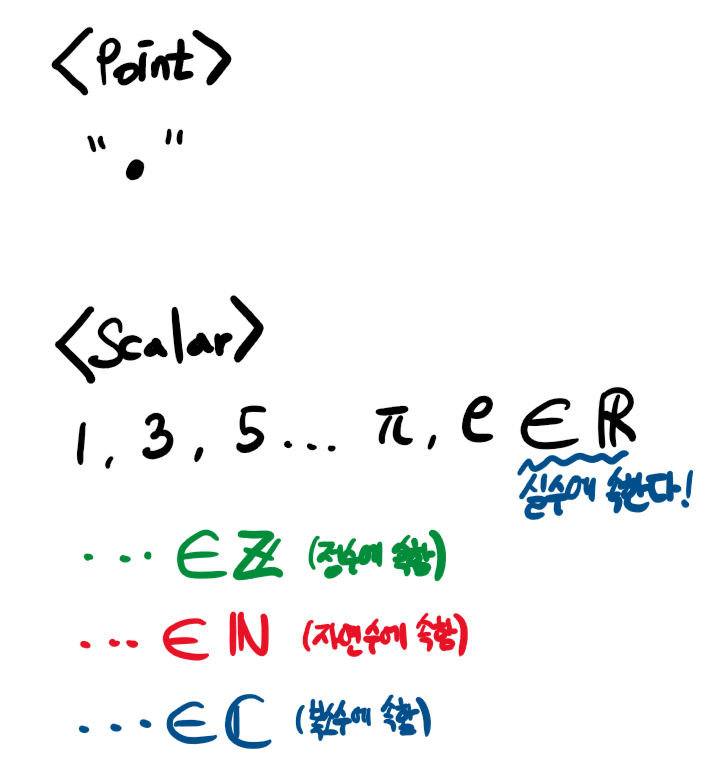 <Point>
" • "
<Scalar>
1, 3, 5... π, e ∈ ℝ
실수에 속한다!
... ∈ ℤ (정수에 속함)
... ∈ ℕ (자연수에 속함)
... ∈ ℂ (복소수에 속함)